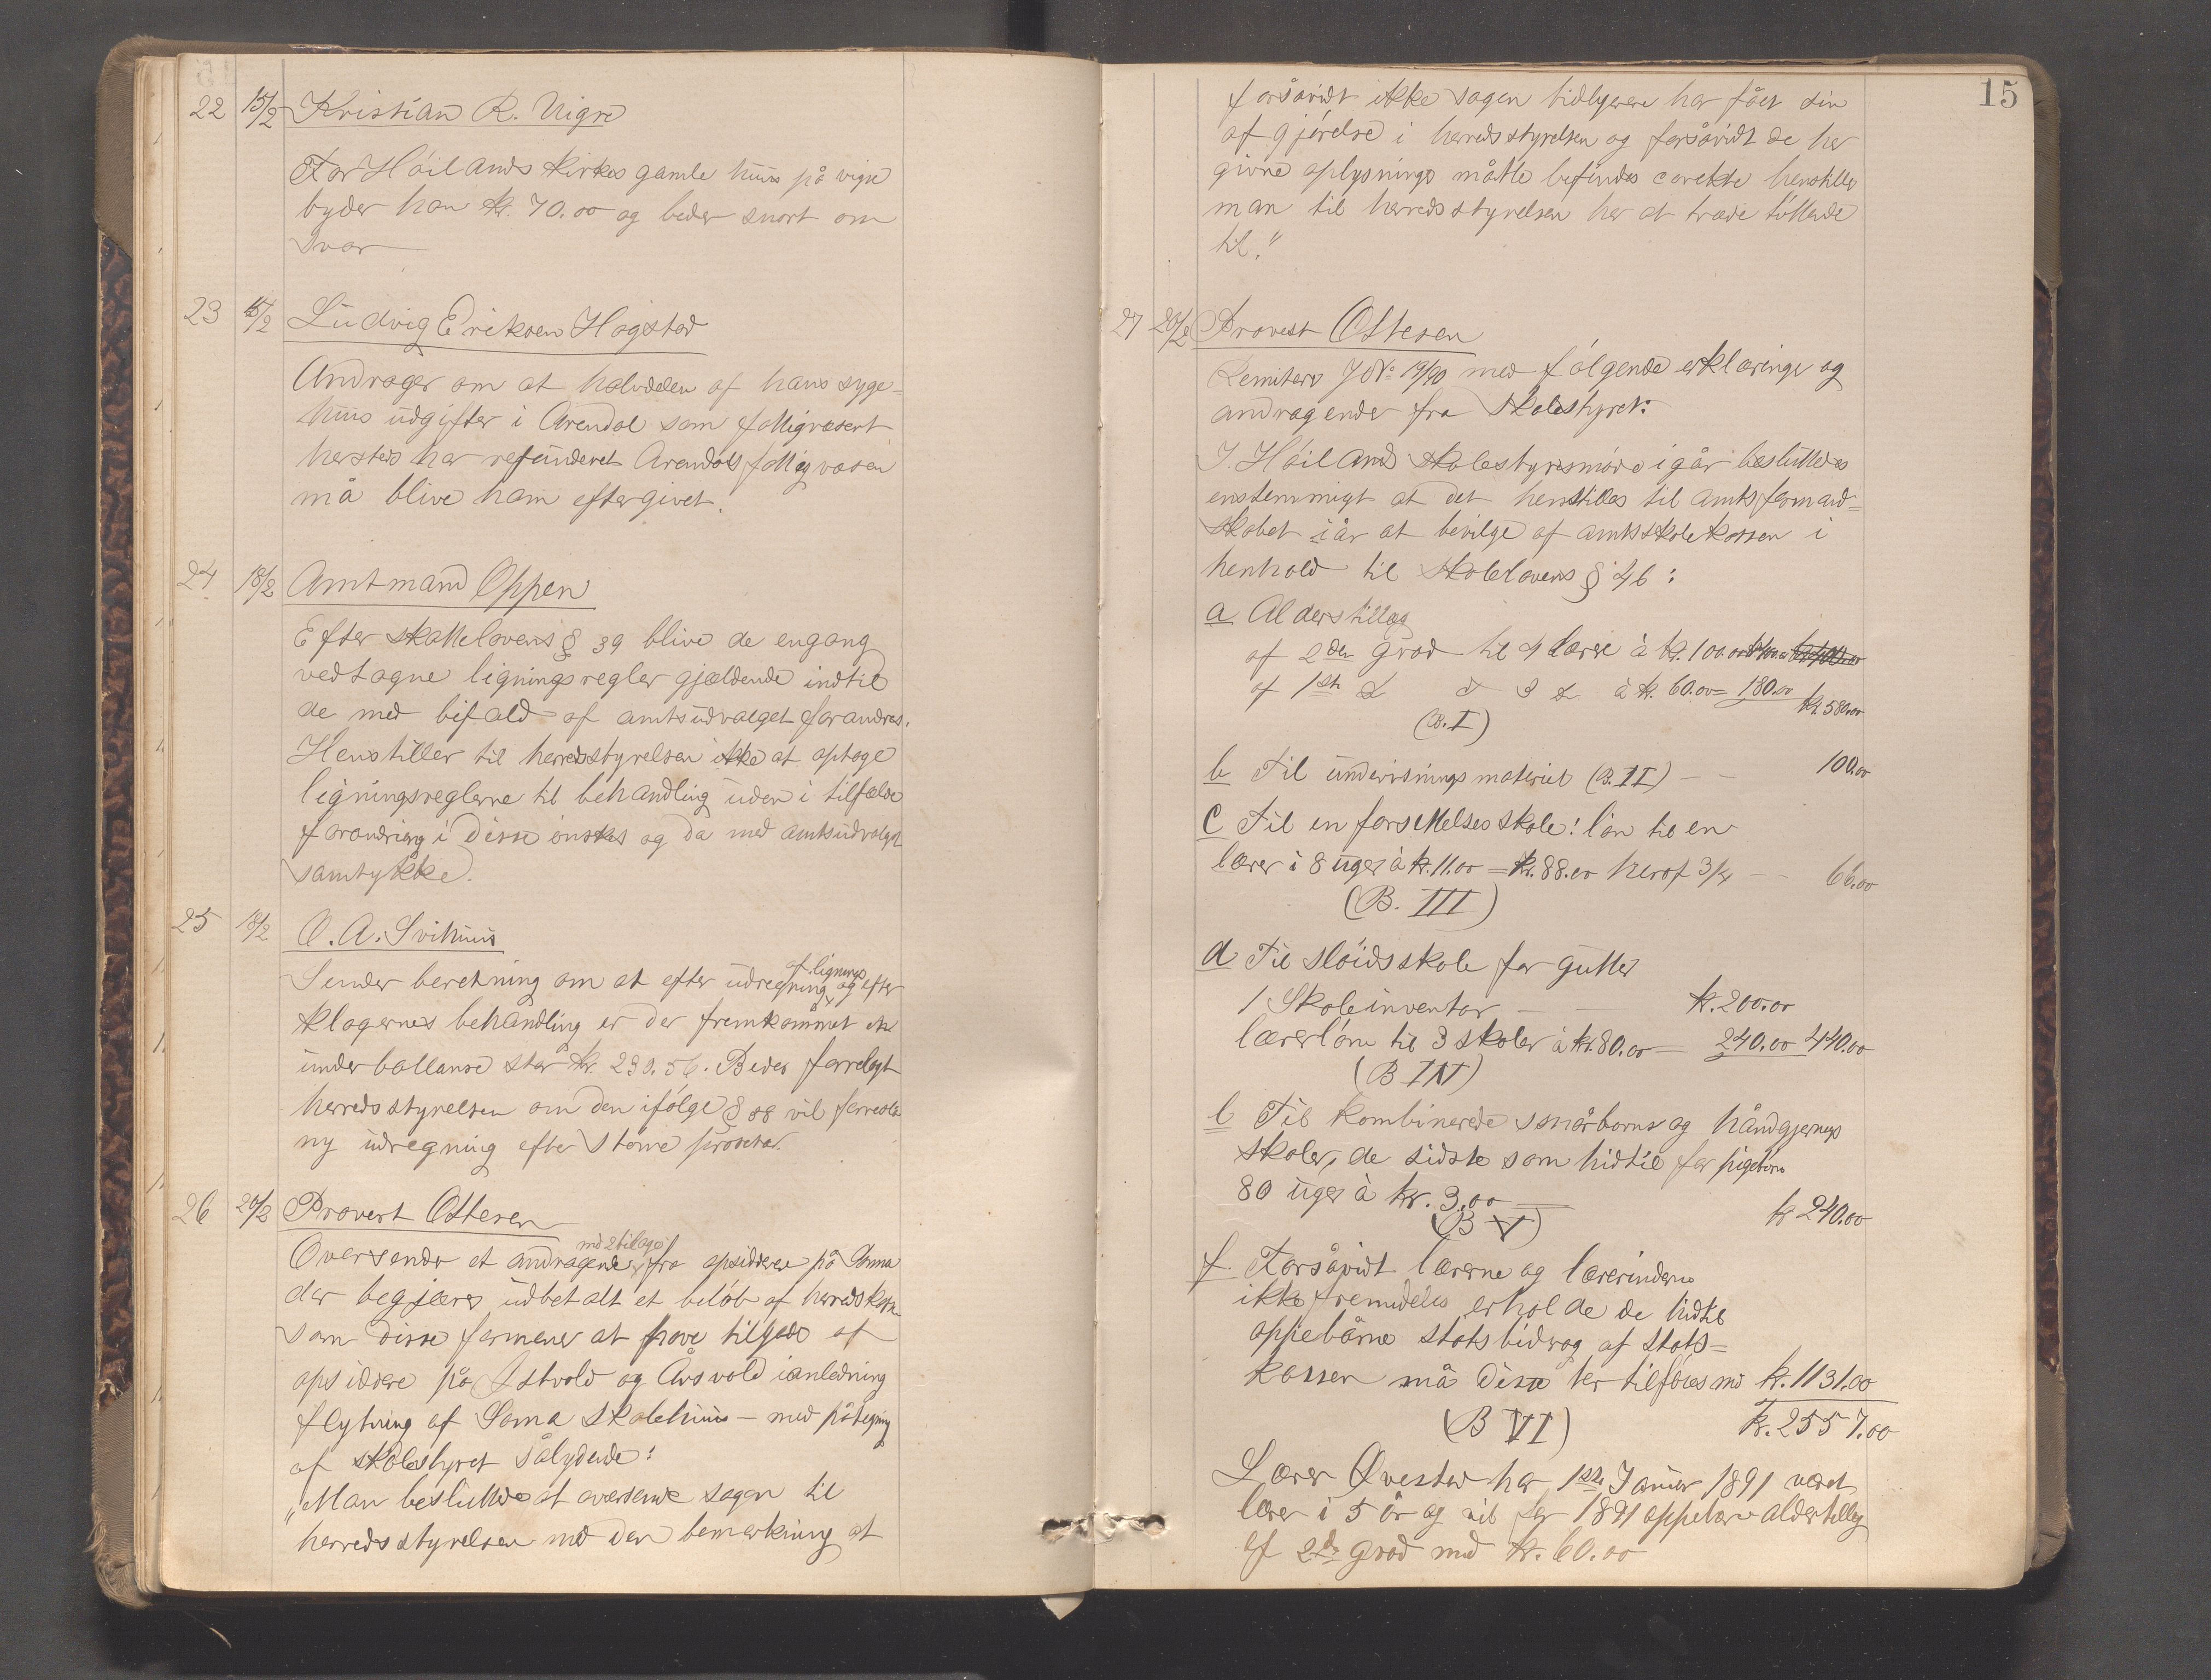 22 15/2 Kristian R. Vigre
For Höilands kirkes gamle huus på vigre
byder han kr. 70.00 og beder snart om
svar
23 15/2 Ludvig Eriksen Hogstad
Andrager om at halvdelen af hans syge=
huus udgifter i Arendal som fattigvæsent
hersteds har refunderet Arendals fattigvæsen
må blive ham eftergivet.
24 18/2 Amtmand Oppen
Efter skattelovens § 39 blive de engang
vedtagne ligningsregler gjældende indtil
de med bifald af amtsudvalget forandres.
Henstiller til herredsstyrelsen ikke at optage
ligningsreglerne til behandling uden i tilfælde
forandring i disse önskes og da med amtsudvalgets
samtykke.
25 18/2 O. A. Svihuus
Sender beretning om at efter udregning af lignings og efter
klagernes behandling er der fremkommet en
underballanse stor kr. 230.56. Bedes forelagt
herredsstyrelsen om den ifölge § 58 vil foreslå
ny udregning efter större prosenter.
26 20/2 Provst Ottesen
Oversender et andragende med 2 bilage fra opsiddere på Soma
der begjæres udbetalt et belöb af herredskassen
som disse formener at have tilgode af
opsiddere på Östvold og Årsvold ianledning
flytning af Soma skolehuus — med påtegning
af skolestyret sålydende:
„Man besluttede at oversende sagen til
herredsstyrelsen med den bemærkning at
15
forsåvidt ikke sagen tidligere har fået sin
afgjörelse i herredsstyrelsen og forsåvidt de her
givne oplysninger måtte befindes corekte henstiller
man til herredsstyrelsen her at træde töttende
til."
27 20/2 Provst Ottesen
Remiters J No 19/90 med fölgende erklæringe og
andragender fra skolestyret:
I. Höiland skolestyresmöde igår besluttedes
enstemmigt at det henstilles til amtsformand=
skabet iår at bevilge af amtsskolekassen i
henhold til skolelovens § 46:
a Alderstillæg
af 2den grad til 4 lærere à kr. 100.00
af 1ste d d 3 d à kr. 60.00 = 180.00 kr 580.00
(B. I)
b Til undervisningsmateriel (B. II) — — 100.00
c Til en forsettelsesskole: lön til en
lærer i 8 uger à kr. 11.00 = kr. 88.00 herof 3/4 — 66.00
(B. III)
d Til slöidsskole for gutter
1 Skoleinventar — — kr. 200.00
lærerlön til 3 skoler à kr. 80.00 = 240.00 440.00
(B IV)
e Til kombinerede småborns og håndgjernings
skoler, de sidste som hidtil for pigebörn
80 uger à kr. 3.00 — kr 240.00
(B V)
f. Forsåvidt lærerne og lærerinderne
ikke fremdeles erholde de hidtil
oppebårne statsbidrag af stats=
kassen må disse her tilföies med kr. 1131.00
(B VI) kr. 2557.00
Lærer Övested har 1ste Januar 1891 været
lærer i 5 år og vil for 1891 oppebære alderstillæg
af 2den grad med kr. 60.00